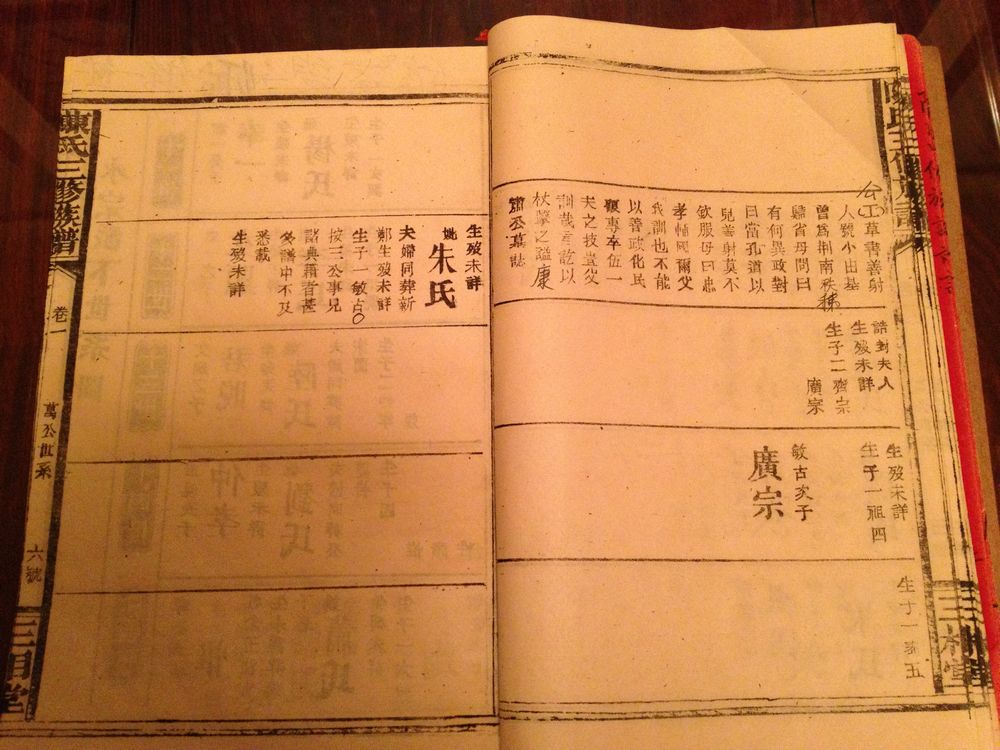 公工草書善射
人號小由基
曾為荊南秩
歸省母問曰
有何異政對
曰當孔道以
兒善射莫不
欽服母曰忠
孝輔國爾父
訓也不能
以善政化民
顧專卒伍一
夫之技豈父
訓哉言訖以
杖擊之謚康
肅公墓誌
誥封夫人
生歿未詳
生子二齊宗
廣宗
生歿未詳
生子一祖四
敏古次子
廣宗
生子一
三相堂
生歿未詳
妣朱氏
夫婦同葬新
鄭生歿未詳
生子一敏古
按三公事見
諸典籍者甚
多譜中不及
悉載
生歿未詳
陳氏三修族譜
卷一
萬公世系
六號
三相堂